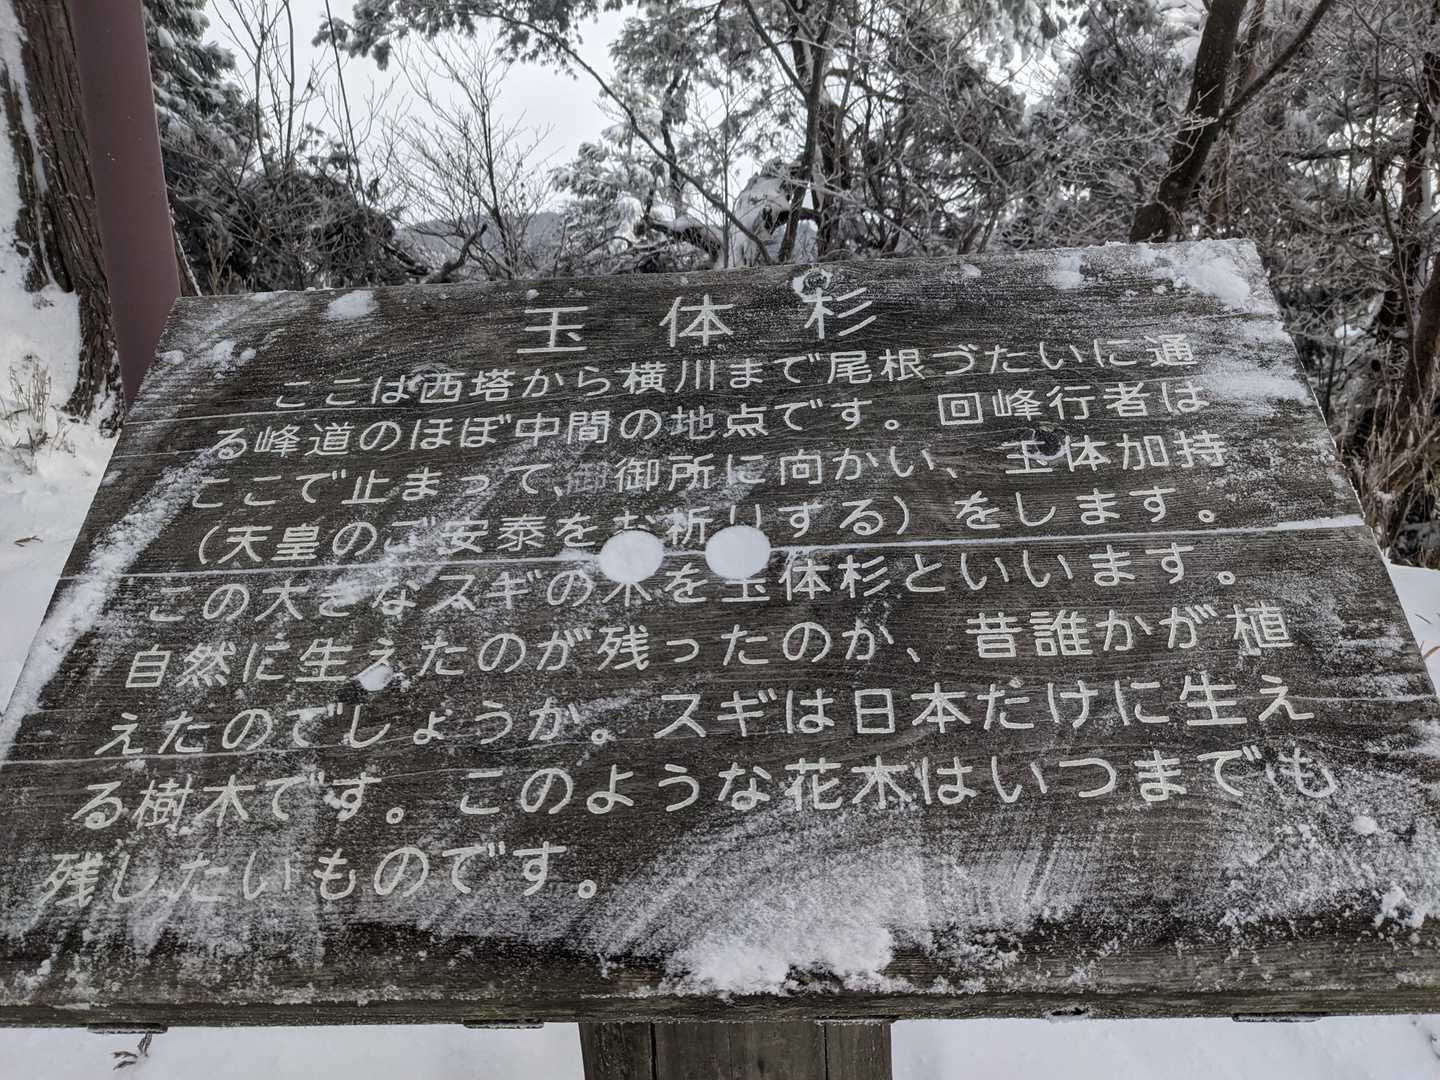 玉体杉
ここは西塔から横川まで尾根づたいに通
る峰道のほぼ中間の地点です。回峰行者は
ここで止まって、御御所に向かい、玉体加持
（天皇のご安泰をお祈りする）をします。
この大きなスギの木を玉体杉といいます。
自然に生えたのが残ったのか、昔誰かが植
えたのでしょうか。スギは日本だけに生え
る樹木です。このような花木はいつまでも
残したいものです。